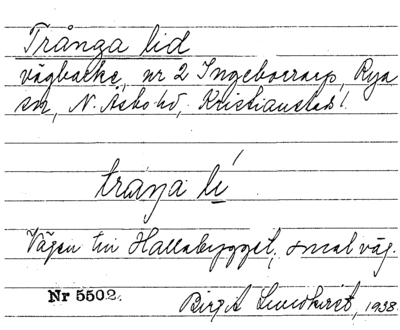 Trånga lid
vägbacke, nr 2 Ingeborrarp, Rya
sn, N. Åsbo hd, Kristianstads l.
traŋa lí
Vägen till Hallabygget, smal väg.
Nr 5502.
Birgit Lundkvist, 1938.